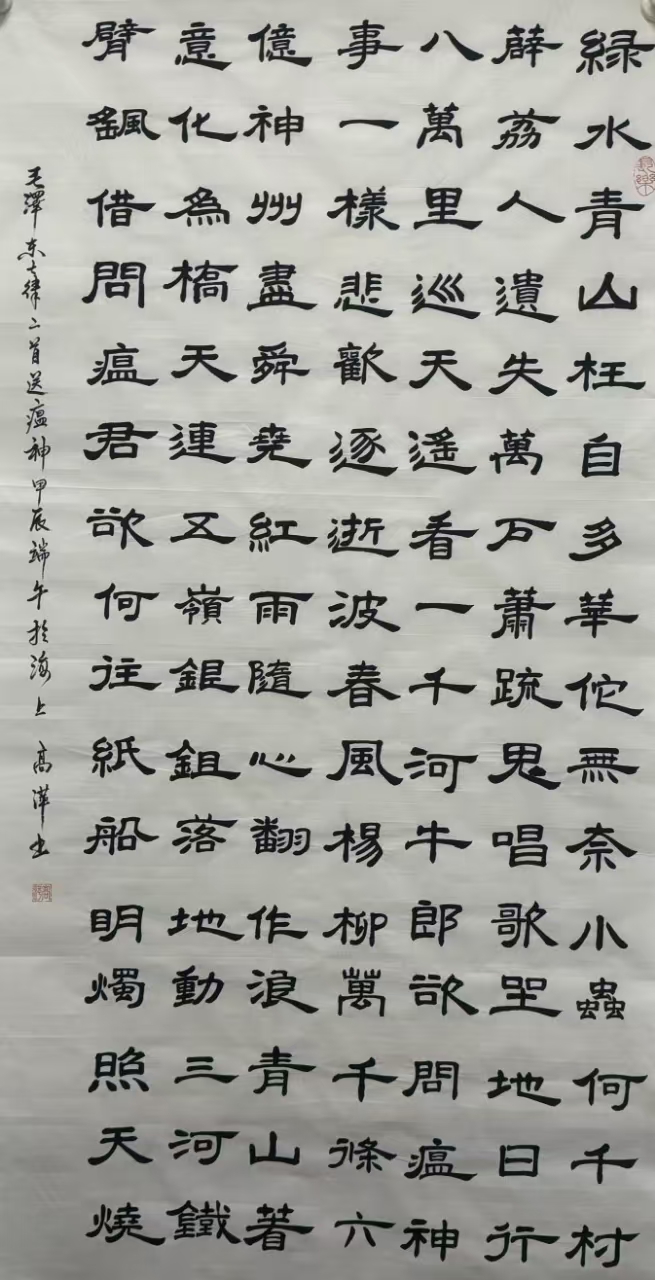 緑水青山枉自多華佗無奈小蟲何千村
薜荔人遺失萬戶蕭疏鬼唱歌坐地日行
八萬里巡天遙看一千河牛郎欲問瘟神
事一樣悲歡逐逝波春風楊柳萬千條六
億神州盡舜堯紅雨隨心翻作浪青山著
意化為橋天連五嶺銀鉏落地動三河鐵
臂颻借問瘟君欲何往紙船明燭照天燒
毛澤东七律二首送瘟神甲辰端午於海上 高萍书